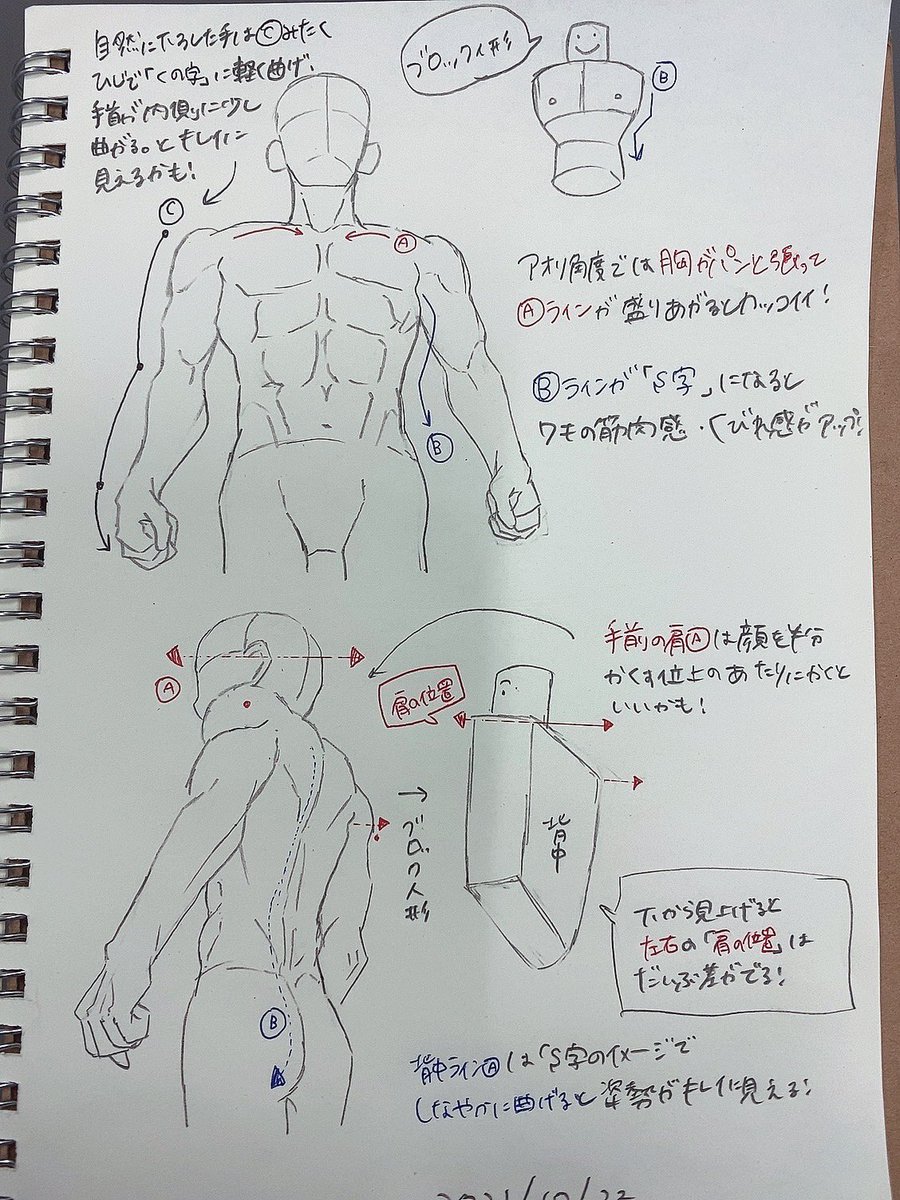 自然に下ろした手はⒸみたく
ひじで「くの字」に軽く曲げ、
手首が内側に少し
曲がる。とキレイに
見えるかも!
Ⓒ
ブロック人形
Ⓑ
Ⓐ
Ⓑ
アオリ角度では胸がパンと張って
Ⓐラインが盛りあがるとカッコイイ!
Ⓑラインが「S字」になると
ワキの筋肉感・くびれ感がアップ!
Ⓐ
肩の位置
手前の肩Ⓐは顔を半分
かくす位上のあたりにかくと
いいかも!
→ブロック人形
背中
下から見上げると
左右の「肩の位置」は
だいぶ差がでる!
Ⓑ
背中ラインⒶは「S字のイメージで
しなやかに曲げると姿勢がキレイに見える!
2021/10/22